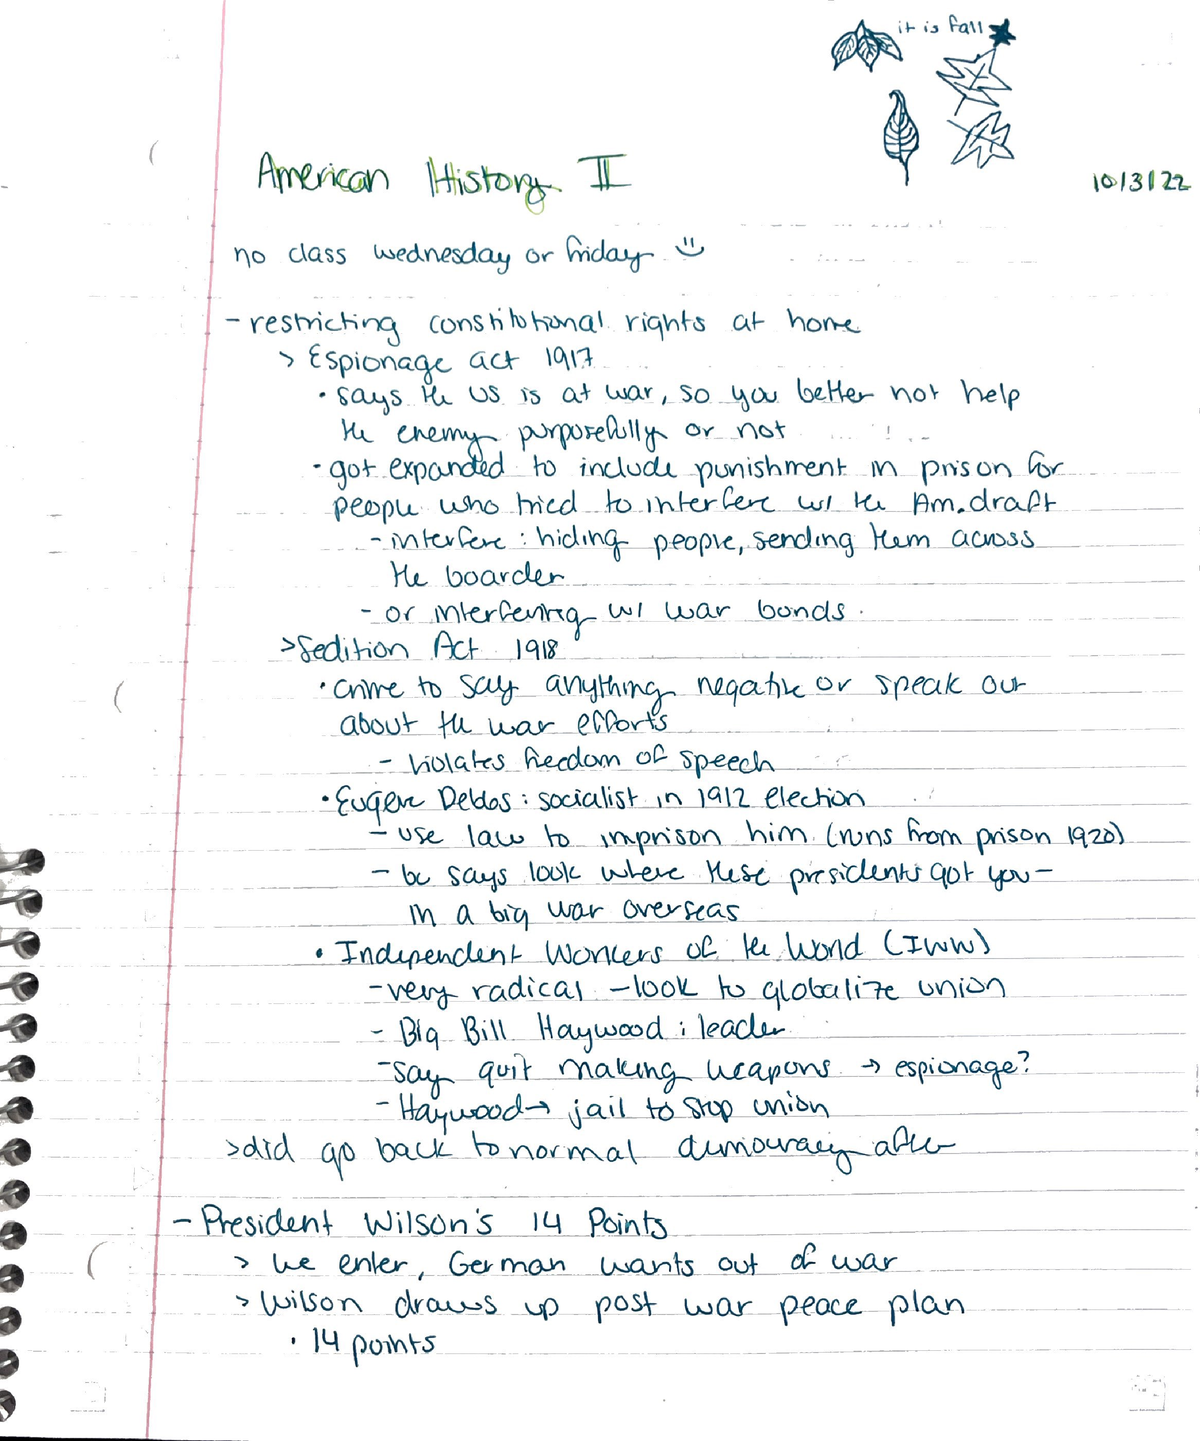 it is fall
American History II
10/3/22
no class wednesday or friday
- restricting constitutional rights at home
> Espionage act 1917
• says the US is at war, so you better not help
the enemy purposefully or not
• got expanded to include punishment in prison for
people who tried to interfere w/ the Am. draft
- interfere : hiding people, sending them across
the boarder
- or interfering w/ war bonds.
> Sedition Act 1918
• crime to say anything negative or speak out
about the war efforts
- violates freedom of speech
• Eugene Debbs : socialist in 1912 election
- use law to imprison him (runs from prison 1920)
- bc says look where these presidents got you -
in a big war overseas
• Independent Workers of the World (IWW)
- very radical - look to globalize union
- Big Bill Haywood : leader
- say quit making weapons → espionage?
- Haywood → jail to stop union
> did go back to normal after
- President Wilson's 14 Points
> we enter, German wants out of war
> Wilson draws up post war peace plan
• 14 points